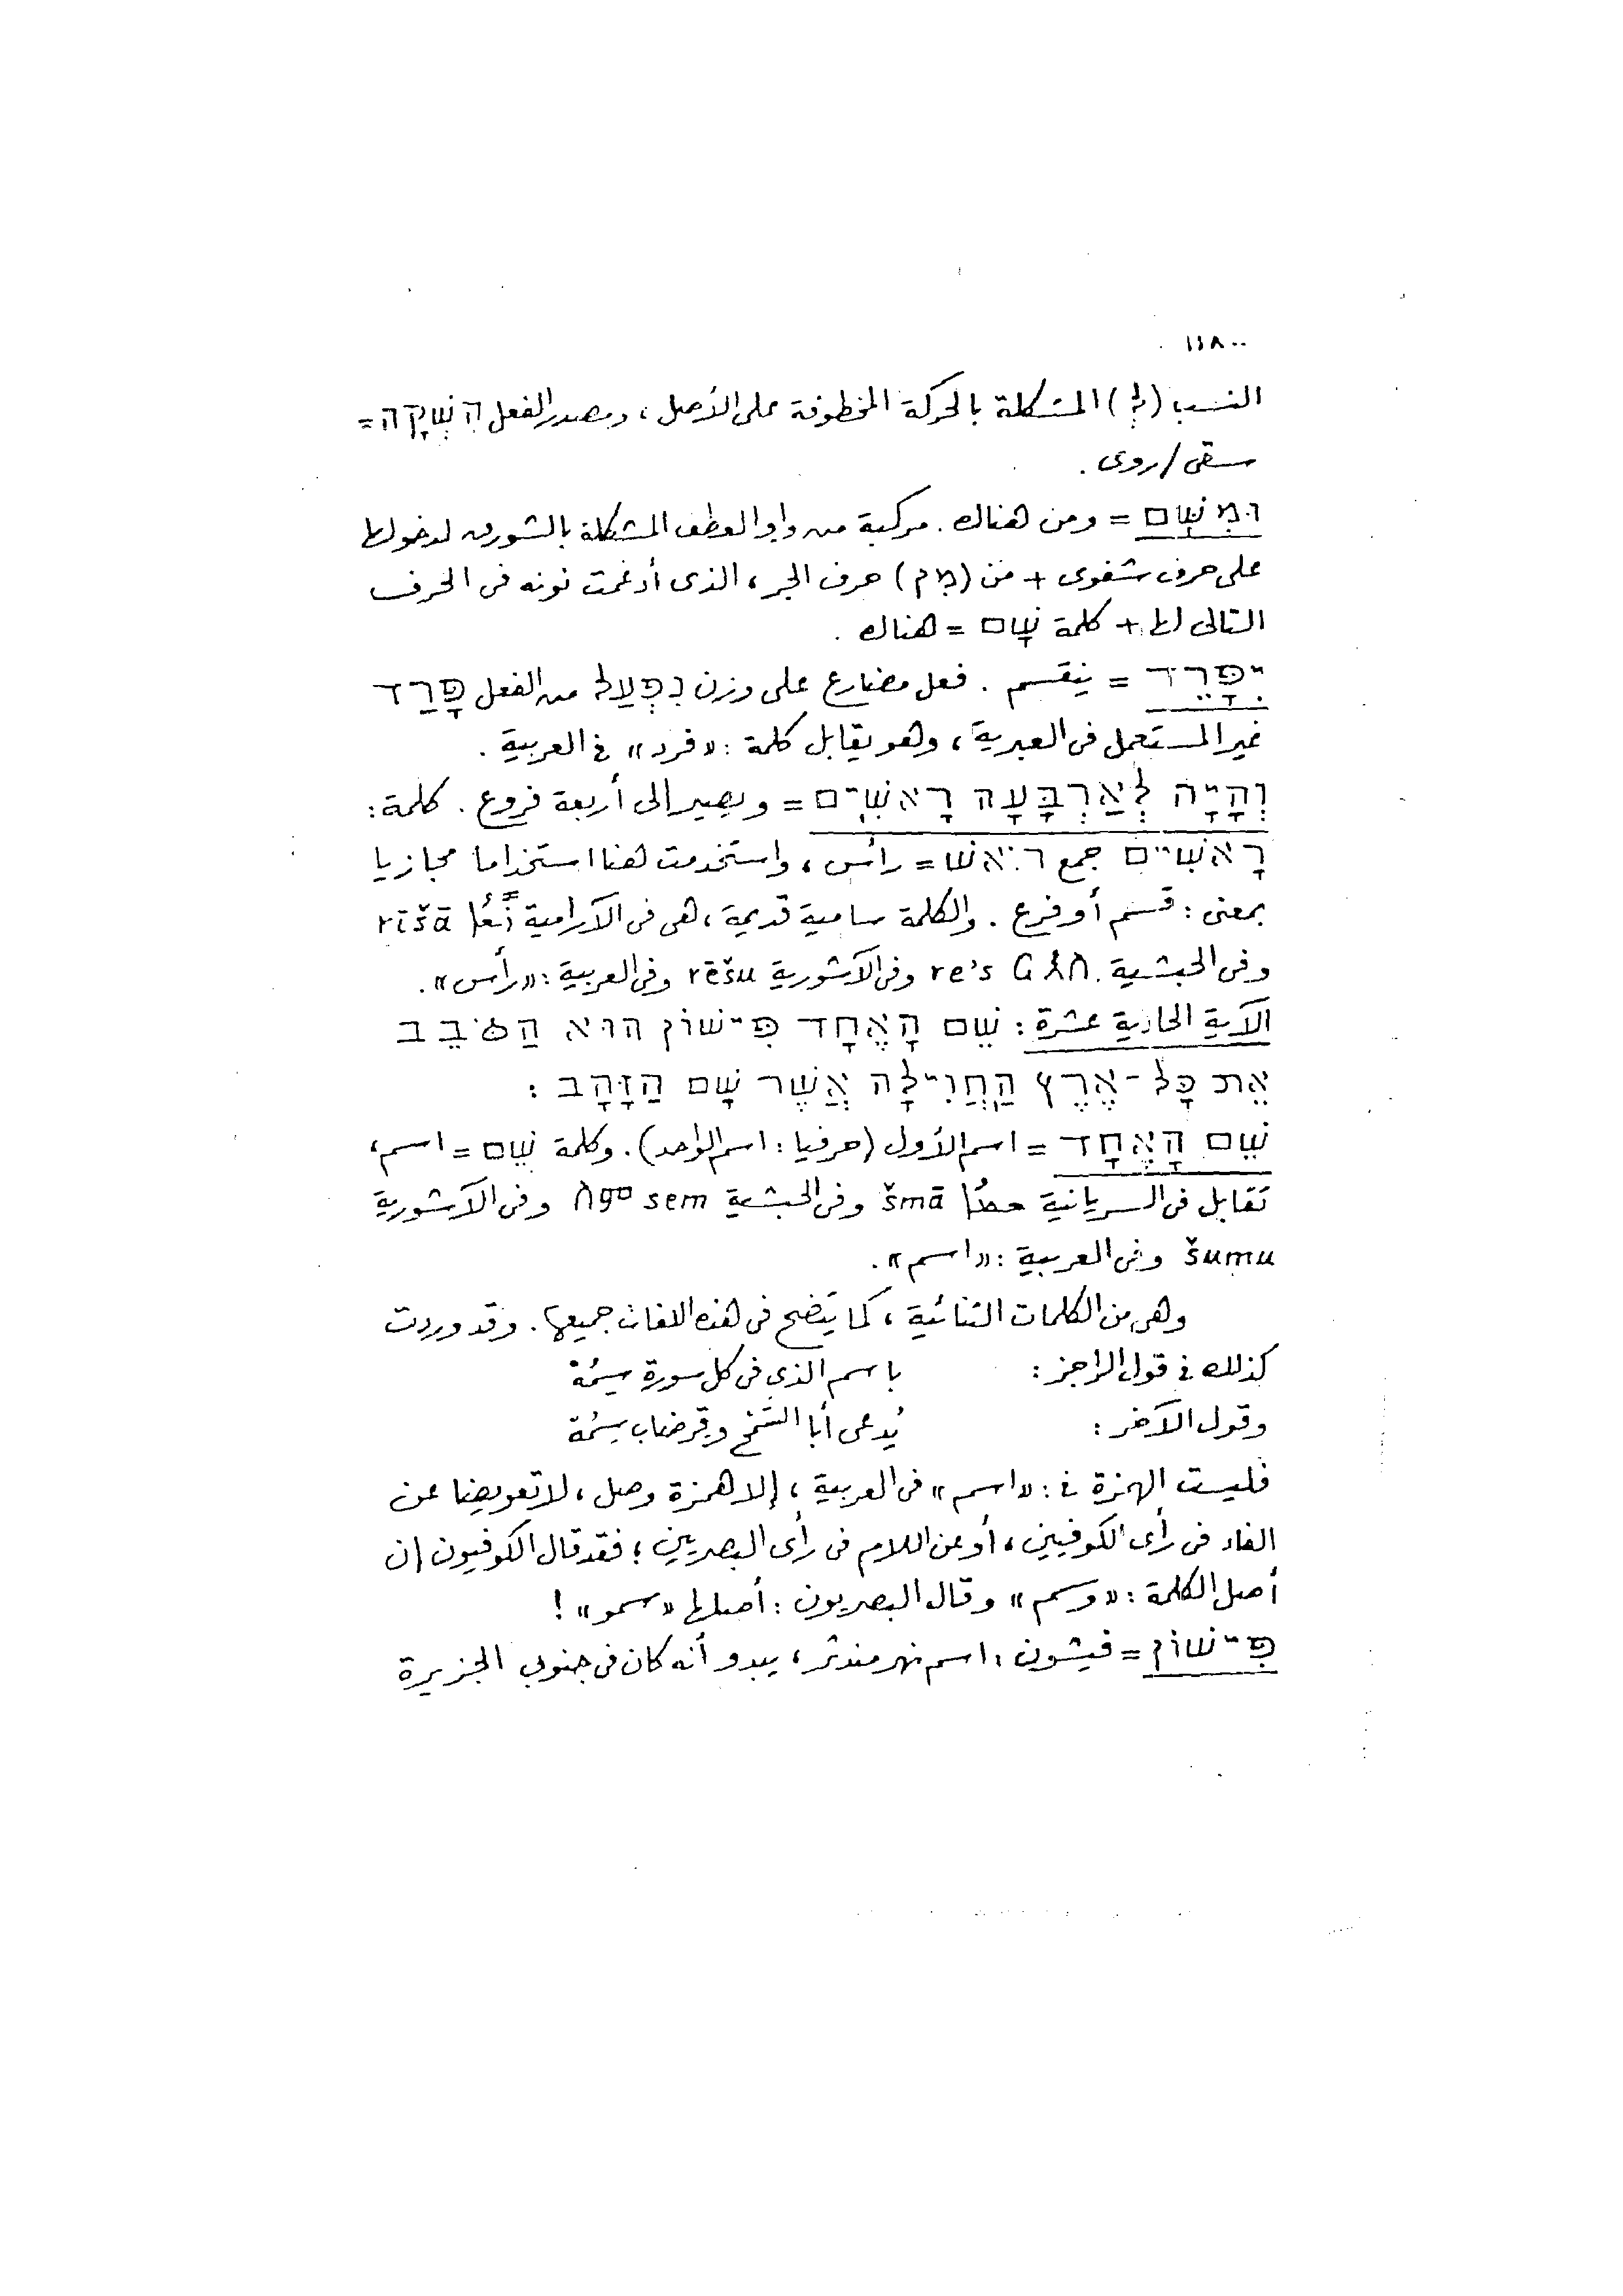 ١١٨
النسب (לְ) المشكلة بالحركة المخطوفة على الأصل، ومصدر الفعل הִשְׁקָה =
سقى / روى .
וּמִשָּׁם = ومن هناك . مركبة من واو العطف المشكلة بالشورق لدخولها
على حرف شفوى + من (מן) حرف الجر ، الذى أدغمت نونه فى الحرف
التالى لها + كلمة שָׁם = هناك .
יִפָּרֵד = ينقسم . فعل مضارع على وزن נִפְעַל من الفعل פָּרַד
غير المستعمل فى العبرية ، وهو يقابل كلمة : «فرد» فى العربية .
וְהָיָה לְאַרְבָּעָה רָאשִׁים = ويصير إلى أربعة فروع . كلمة :
רָאשִׁים جمع רֹאשׁ = رأس ، واستخدمت هنا استخداما مجازيا
بمعنى : قسم أو فرع . والكلمة سامية قديمة ، هى فى الآرامية ܪܫܐ rīšā
وفى الحبشية ርእስ re's وفى الآشورية rēšu وفى العربية : «رأس» .
الآية الحادية عشرة : שֵׁם הָאֶחָד פִּישׁוֹן הוּא הַסֹּבֵב
אֵת כָּל־אֶרֶץ הַחֲוִילָה אֲשֶׁר שָׁם הַזָּהָב :
שֵׁם הָאֶחָד = اسم الأول (حرفيا : اسم الواحد) . وكلمة שֵׁם = اسم ،
تقابل فى السريانية ܫܡܐ šmā وفى الحبشية ስም sem وفى الآشورية
šumu وفى العربية : «اسم» .
وهى من الكلمات الثنائية ، كما يتضح فى هذه اللغات جميعها . وقد وردت
كذلك فى قول الراجز : باسم الذى فى كل سورة سِمُهْ
وقول الآخر : يُدعى أبا السَّمْح وقِرضاب سِمُهْ
فليست الهمزة فى : «اسم» فى العربية ، إلا همزة وصل ، لا تعويضا عن
الفاء فى رأى الكوفيين ، أو عن اللام فى رأى البصريين ؛ فقد قال الكوفيون إن
أصل الكلمة : «وسم» وقال البصريون : أصلها «سمو» !
פִּישׁוֹן = فيشون ، اسم نهر مندثر ، يبدو أنه كان فى جنوب الجزيرة